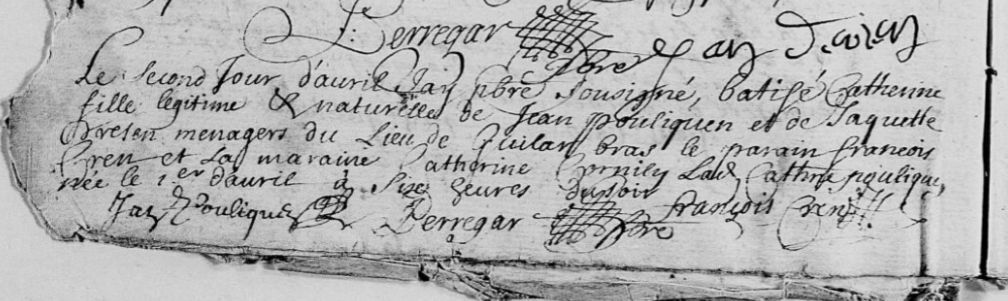 F: Derregar pbre Jan
Le second Jour d'auril Jay pbre sousigné, batisé Catherinne
fille legitime & naturelle de Jean pouliquen et de Jaquette
menagers du Lieu de Quilan bras le parain francois
Cren et La maraine Catherine Cornily Lad Cathne poulique,
née le 1er d'auril à Six heures du soir
Jan Pouliquen Derregar pbre francois Cren